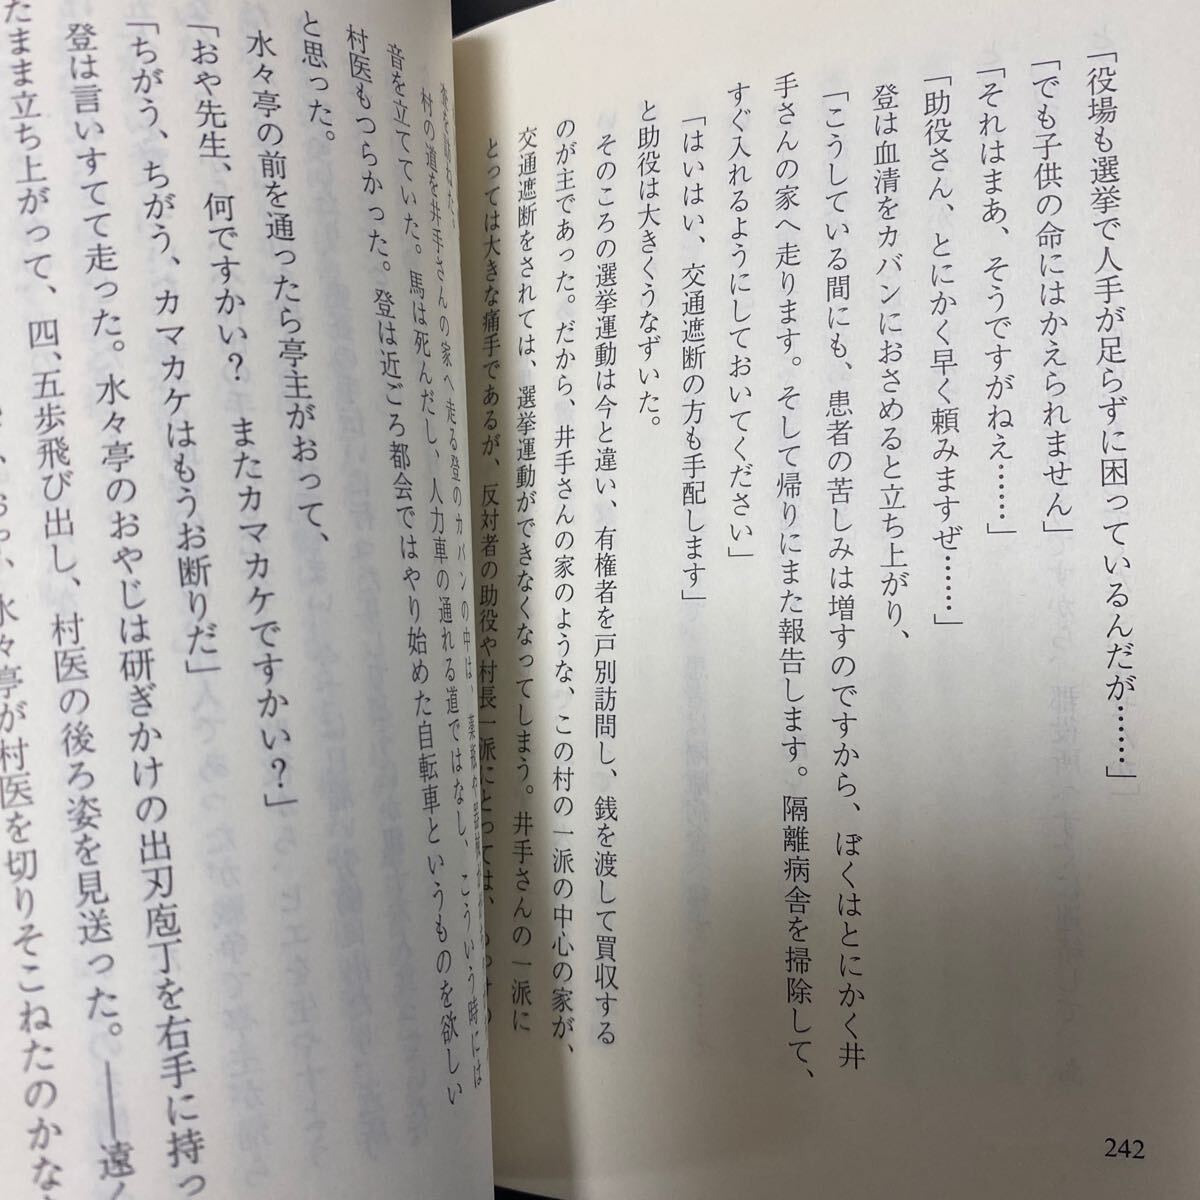 「役場も選挙で人手が足らずに困っているんだが……」
「でも子供の命にはかえられません」
「それはまあ、そうですがねえ……」
「助役さん、とにかく早く頼みますぜ……」
登は血清をカバンにおさめると立ち上がり、
「こうしている間にも、患者の苦しみは増すのですから、ぼくはとにかく井
手さんの家へ走ります。そして帰りにまた報告します。隔離病舎を掃除して、
すぐ入れるようにしておいてください」
「はいはい、交通遮断の方も手配します」
と助役は大きくうなずいた。
そのころの選挙運動は今と違い、有権者を戸別訪問し、銭を渡して買収する
のが主であった。だから、井手さんの家のような、この村の一派の中心の家が、
交通遮断をされては、選挙運動ができなくなってしまう。井手さんの一派に
とっては大きな痛手であるが、反対者の助役や村長一派にとっては、
242
村の道を井手さんの家へ走る登のカバンの中は、薬瓶や
音を立てていた。馬は死んだし、人力車の通れる道ではなし、こういう時には
村医もつらかった。登は近ごろ都会ではやり始めた自転車というものを欲しい
と思った。
水々亭の前を通ったら亭主がおって、
「おや先生、何ですかい？またカマカケですかい？」
「ちがう、ちがう、カマカケはもうお断りだ」
登は言いすてて走った。水々亭のおやじは研ぎかけの出刃庖丁を右手に持っ
たまま立ち上がって、四、五歩飛び出し、村医の後ろ姿を見送った。――遠く
水々亭が村医を切りそこねたのかな